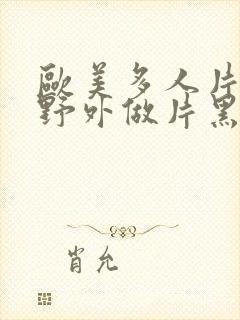 歐美多人片
野外做片黑
肖允